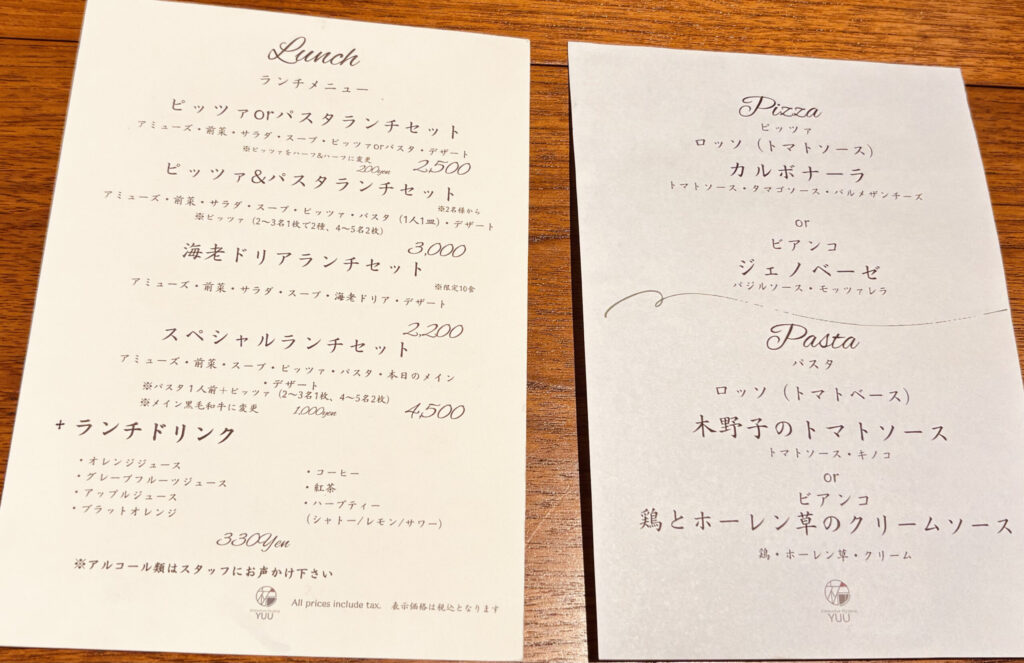 Lunch
ランチメニュー
ピッツァorパスタランチセット
アミューズ・前菜・サラダ・スープ・ピッツァorパスタ・デザート
※ピッツァをハーフ&ハーフに変更
200yen
2,500
ピッツァ&パスタランチセット
※2名様から
アミューズ・前菜・サラダ・スープ・ピッツァ・パスタ（1人1皿）・デザート
※ピッツァ（2〜3名1枚で2種、4〜5名2枚）
3,000
海老ドリアランチセット
※限定10食
アミューズ・前菜・サラダ・スープ・海老ドリア・デザート
2,200
スペシャルランチセット
アミューズ・前菜・スープ・ピッツァ・パスタ・本日のメイン
・デザート
※パスタ1人前+ピッツァ（2〜3名1枚、4〜5名2枚）
※メイン黒毛和牛に変更 1,000yen
4,500
+ ランチドリンク
・オレンジジュース
・グレープフルーツジュース
・アップルジュース
・ブラットオレンジ
・コーヒー
・紅茶
・ハーブティー
（シャトー/レモン/サワー）
330Yen
※アルコール類はスタッフにお声かけ下さい
YUU
All prices include tax. 表示価格は税込となります
Pizza
ピッツァ
ロッソ（トマトソース）
カルボナーラ
トマトソース・タマゴソース・パルメザンチーズ
or
ビアンコ
ジェノベーゼ
バジルソース・モッツァレラ
Pasta
パスタ
ロッソ（トマトベース）
木野子のトマトソース
トマトソース・キノコ
or
ビアンコ
鶏とホーレン草のクリームソース
鶏・ホーレン草・クリーム
YUU